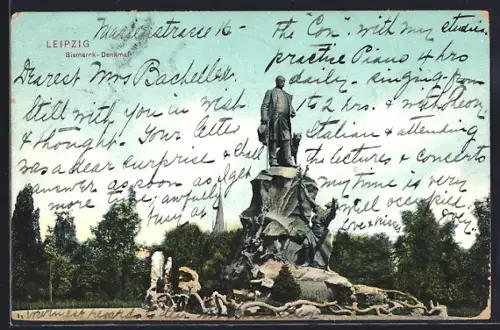 Marienstrasse 16 -
LEIPZIG
Bismarck-Denkmal
Dearest Mrs Bacheller.
Still with you in wish
& thought. Your letter
was a dear surprise & shall
answer as soon as I get
more time, awfully
busy at
the "Con" with my studies.
practise Piano 4 hrs
daily. singing from
1 to 2 hrs. &
Italian & attending
the lectures & concerts
my time is very
well occupied.
Love & kiss